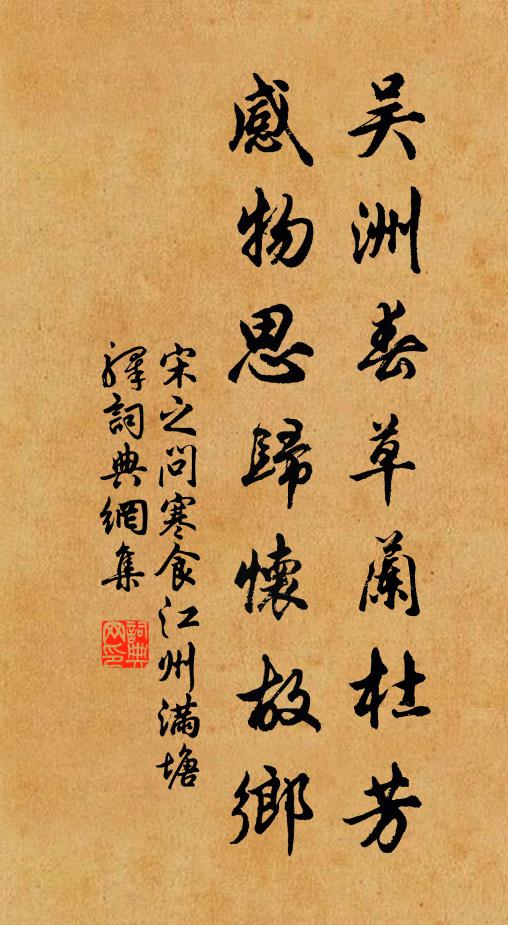 吴洲春草蘭杜芳
感物思歸懷故鄉
宋之问寒食江州满塘
驛詞典網集
詞典